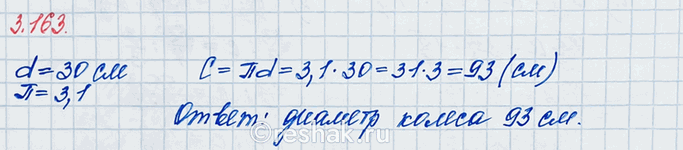 3.163.
d = 30 см C = πd = 3,1 · 30 = 31 · 3 = 93 (см)
π = 3,1
Ответ: диаметр колеса 93 см.
©reshak.ru